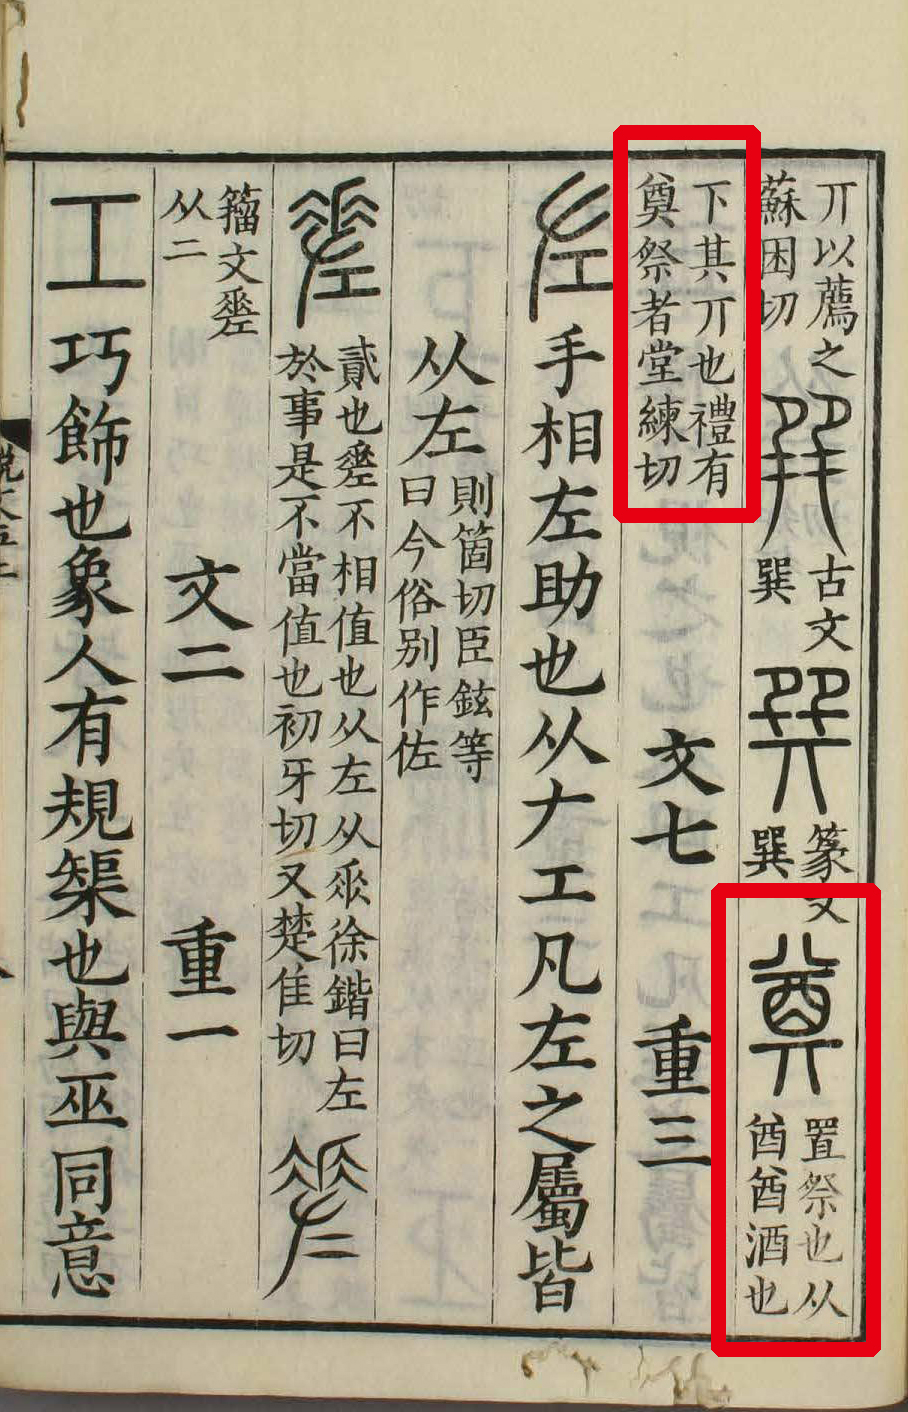 丌以薦之
蘇困切
古文
巽
篆文
巽
奠
置祭也从
酋酋酒也
下其丌也禮有
奠祭者堂練切
文七
重三
左
手相左助也从𠂇工凡左之屬皆
从左
則箇切臣鉉等
曰今俗别作佐
𢀩
貳也𢀩不相值也从左从𠂹徐鍇曰左
於事是不當值也初牙切又楚隹切
籀文𢀩
从二
文二
重一
工
巧飾也象人有規榘也與巫同意